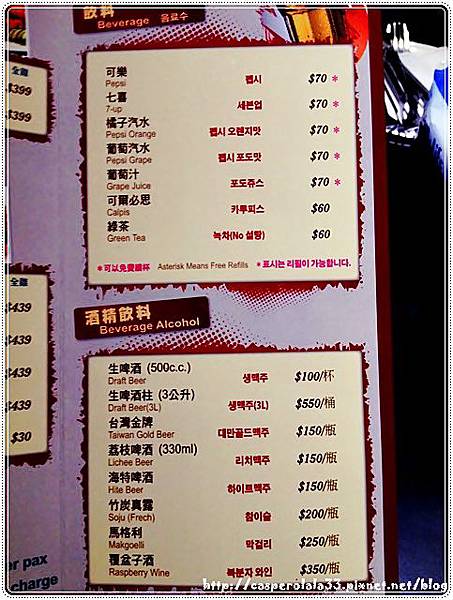 飲料
Beverage 음료수
可樂
Pepsi 펩시 $70 *
七喜
7-up 세븐업 $70 *
橘子汽水
Pepsi Orange 펩시 오렌지맛 $70 *
葡萄汽水
Pepsi Grape 펩시 포도맛 $70 *
葡萄汁
Grape Juice 포도쥬스 $70 *
可爾必思
Calpis 카루피스 $60
綠茶
Green Tea 녹차(No 설탕) $60
*可以免費續杯 Asterisk Means Free Refills *표시는 리필이 가능합니다.
酒精飲料
Beverage Alcohol
生啤酒 (500c.c.)
Draft Beer 생맥주 $100/杯
生啤酒柱 (3公升)
Draft Beer(3L) 생맥주(3L) $550/桶
台灣金牌
Taiwan Gold Beer 대만골드맥주 $150/瓶
荔枝啤酒 (330ml)
Lichee Beer 리치맥주 $150/瓶
海特啤酒
Hite Beer 하이트맥주 $150/瓶
竹炭真露
Soju (Frech) 참이슬 $200/瓶
馬格利
Makgoelli 막걸리 $250/瓶
覆盆子酒
Raspberry Wine 복분자 와인 $350/瓶
全雞
$399
$399
全雞
$439
$439
$439
$439
$30
er pax
charge
http://casperolala33.pixnet.net/blog